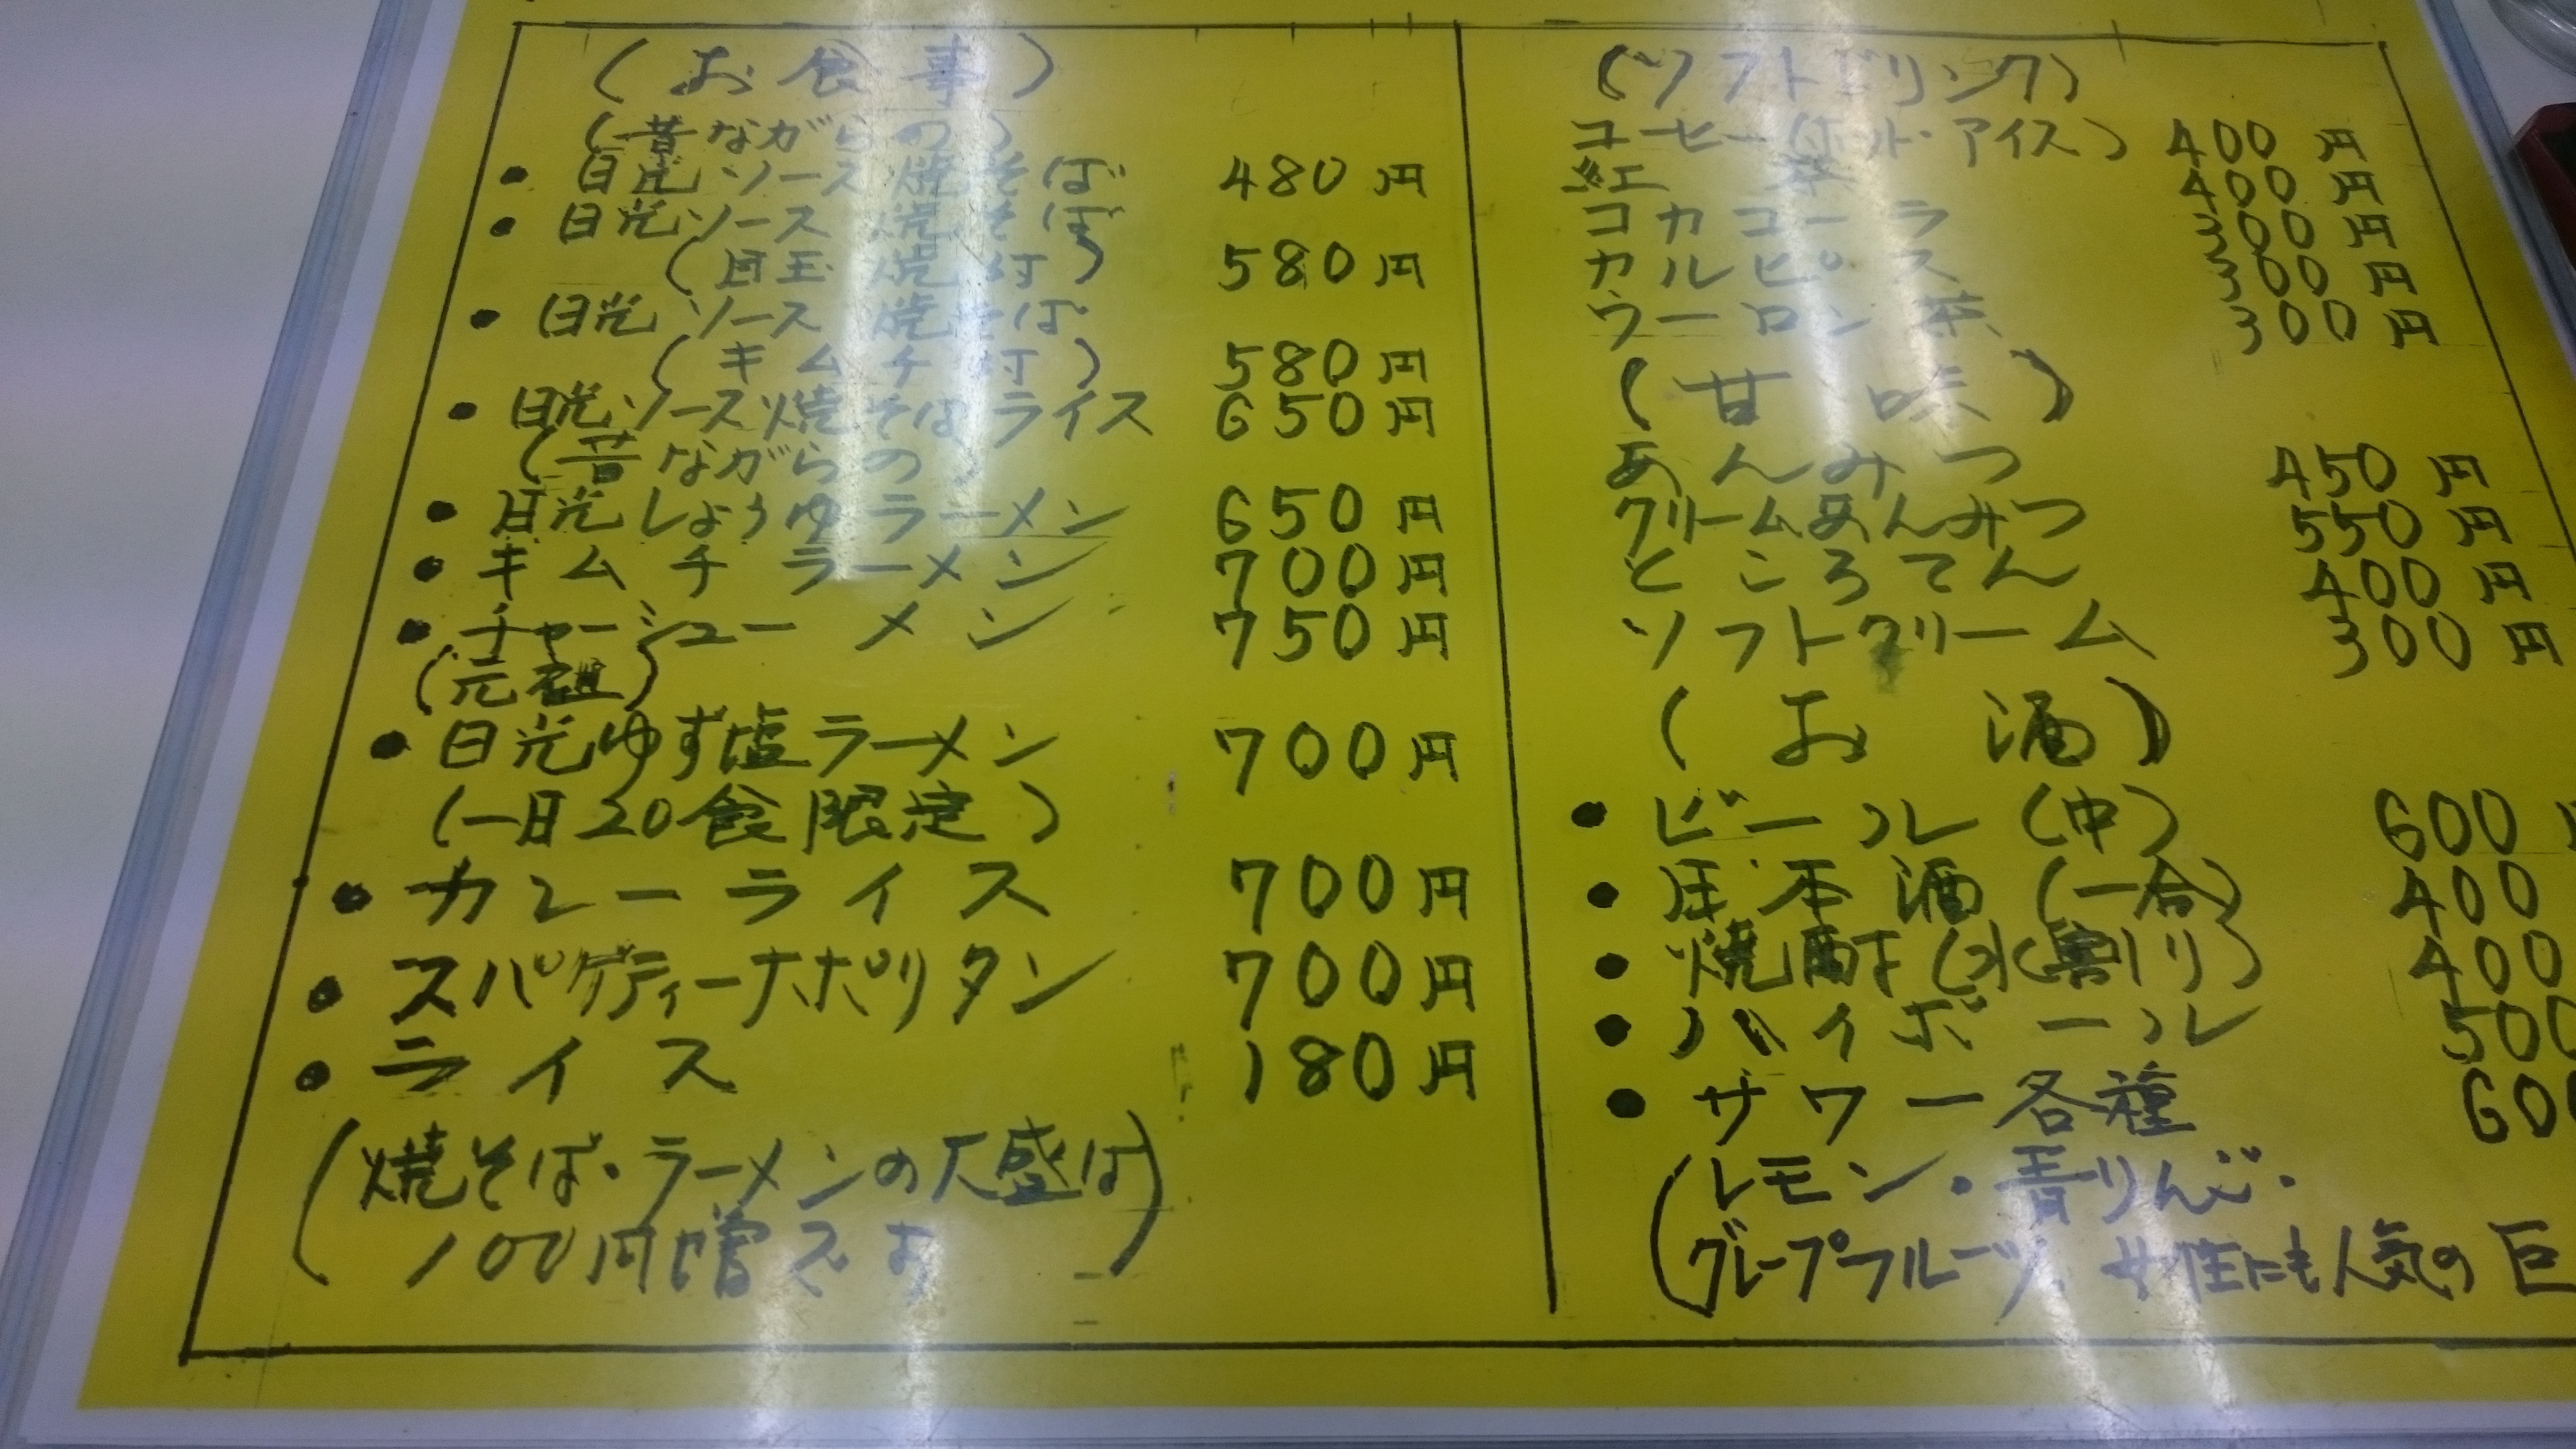 (お食事)
(昔ながらの)
・日光ソース焼そば 480円
・日光ソース焼そば
(目玉焼付) 580円
・日光ソース焼そば
(キムチ付) 580円
・日光ソース焼そばライス 650円
(昔ながらの)
・日光しょうゆラーメン 650円
・キムチラーメン 700円
・チャーシューメン 750円
(元祖)
・日光ゆず塩ラーメン 700円
(一日20食限定)
・カレーライス 700円
・スパゲティーナポリタン 700円
・ライス 180円
(焼そば・ラーメンの大盛は
100円増です)
(ソフトドリンク)
コーヒー(ホット・アイス) 400円
紅茶 400円
コカコーラ 300円
カルピス 300円
ウーロン茶 300円
(甘味)
あんみつ 450円
クリームあんみつ 550円
ところてん 400円
ソフトクリーム 300円
(お酒)
・ビール(中) 600
・日本酒(一合) 400
・焼酎(水割り) 400
・ハイボール 500
・サワー各種 60
(レモン・青りんご・
グレープフルーツ、女性にも人気の巨